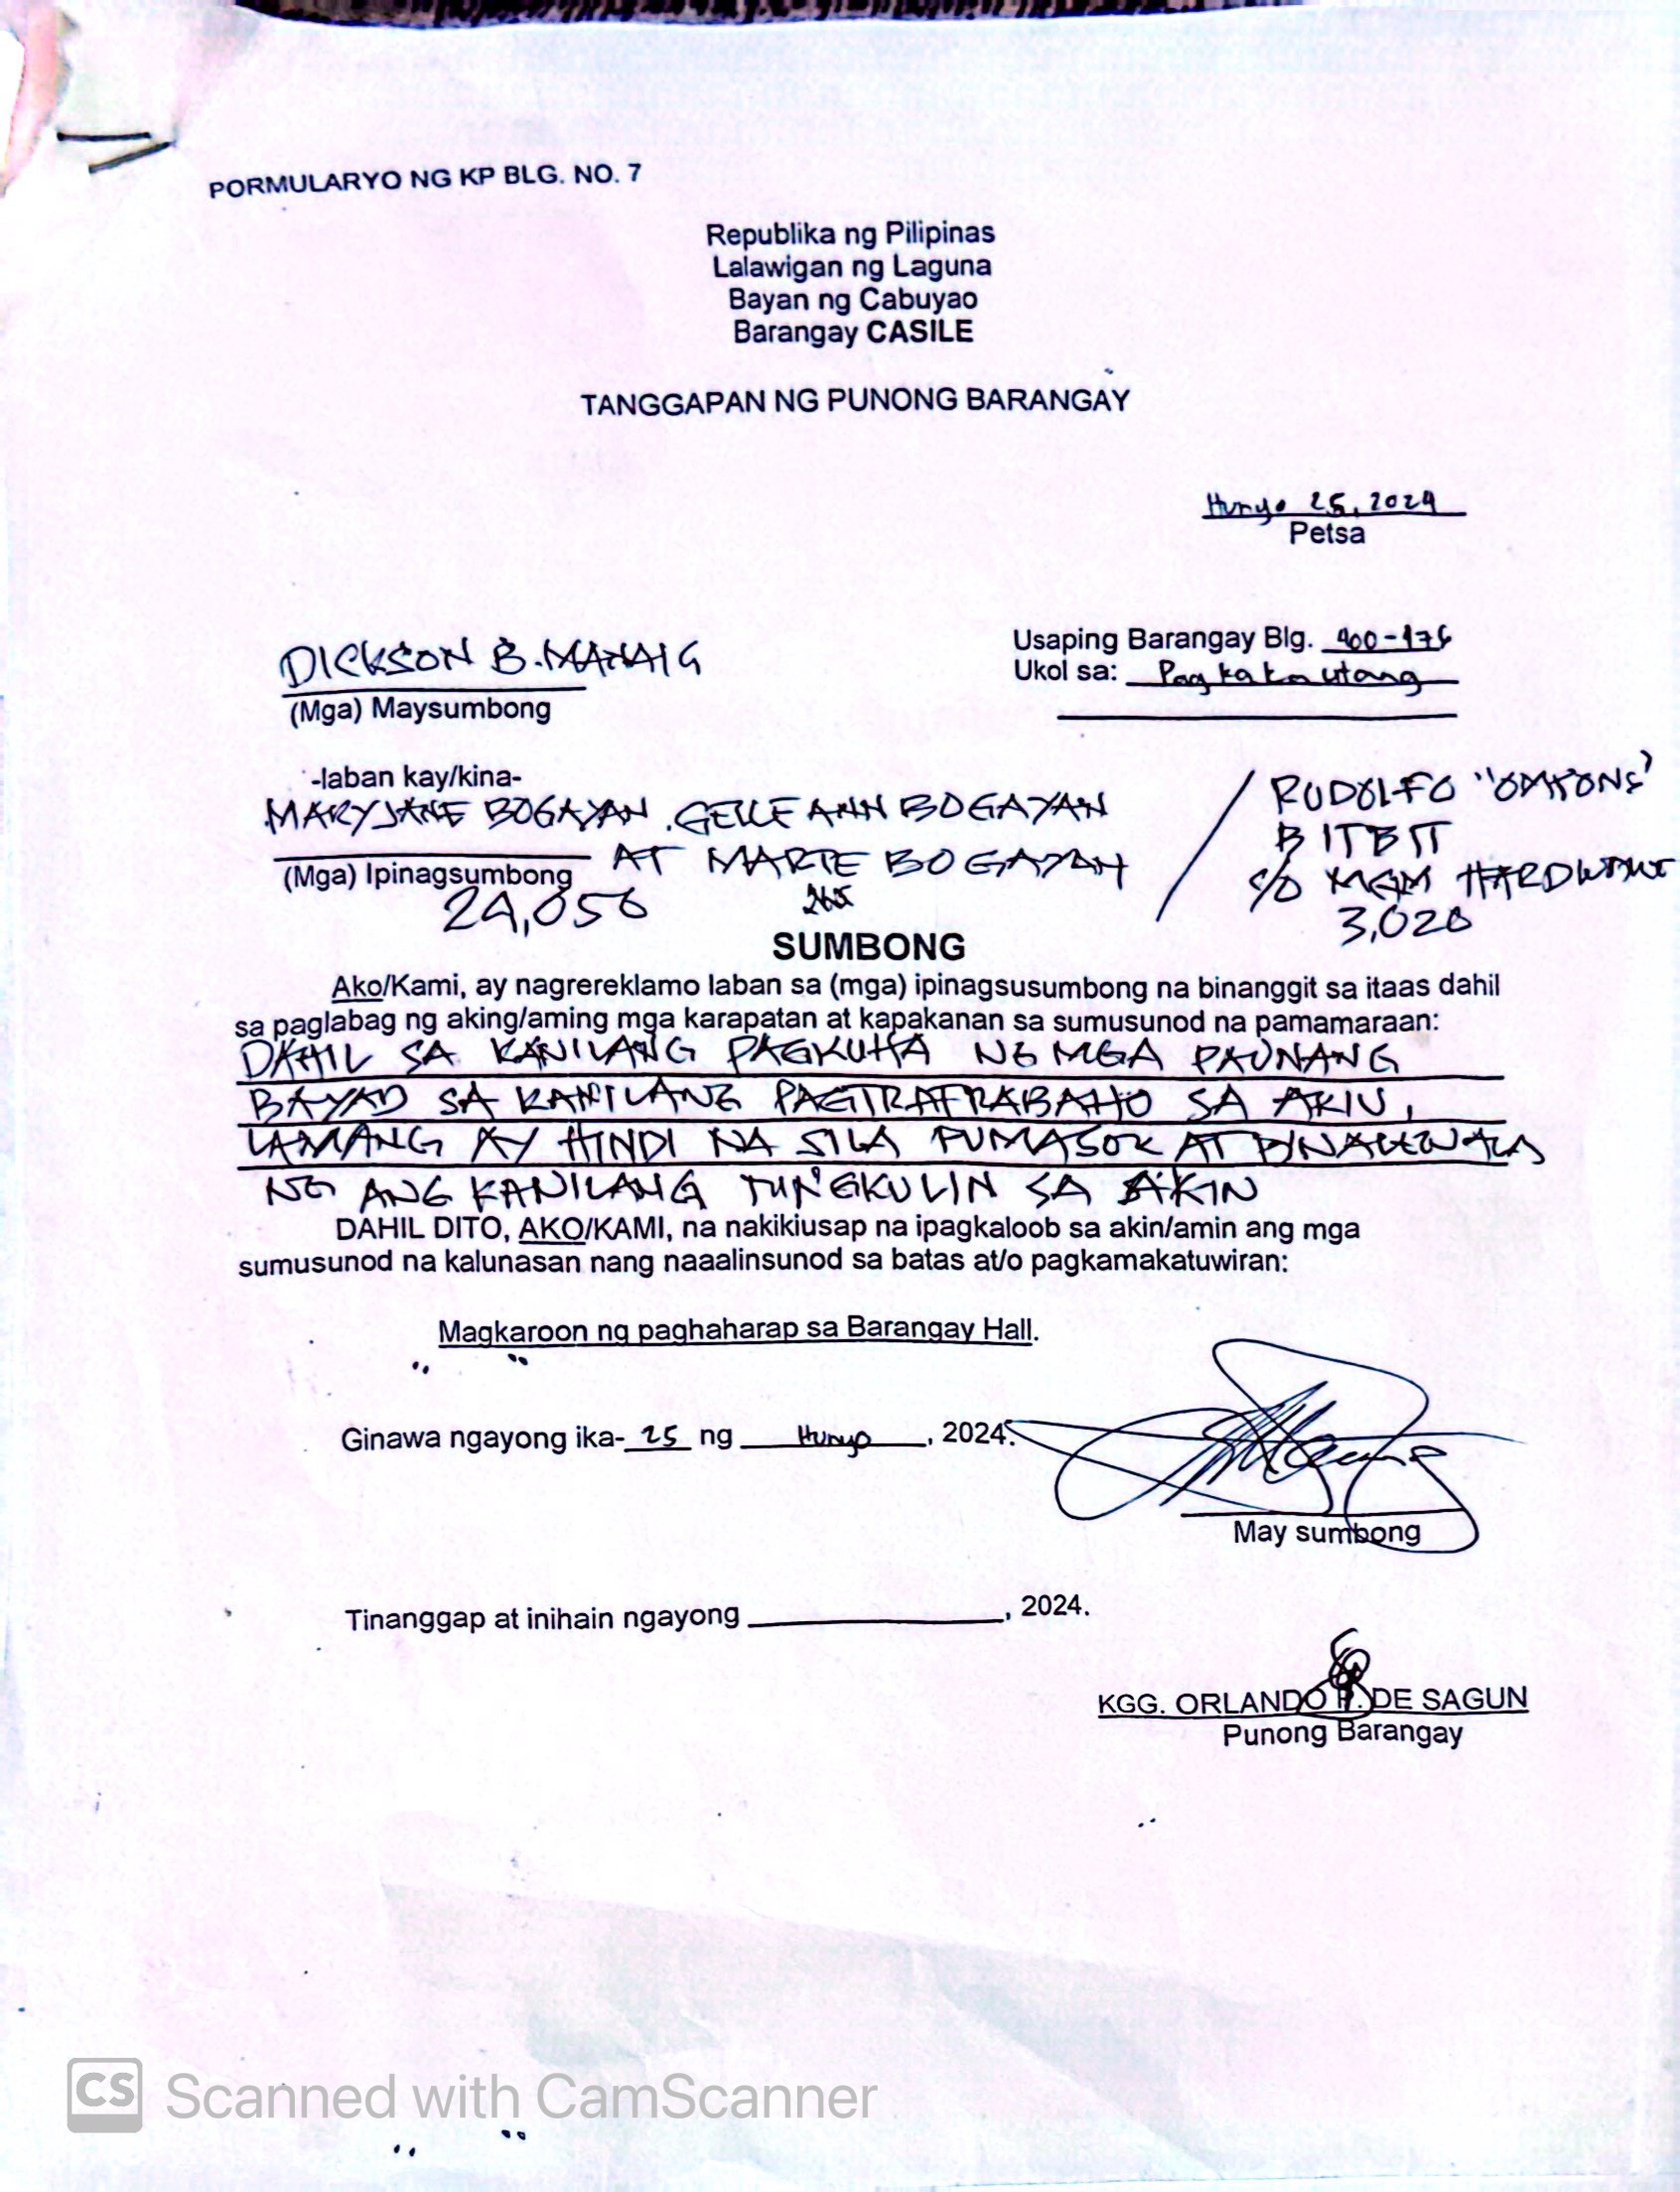 PORMULARYO NG KP BLG. NO. 7
Republika ng Pilipinas
Lalawigan ng Laguna
Bayan ng Cabuyao
Barangay CASILE
TANGGAPAN NG PUNONG BARANGAY
Hunyo 25, 2024
Petsa
DICKSON B. MANAIG
(Mga) Maysumbong
Usaping Barangay Blg.
Ukol sa: Pagkakautang
-laban kay/kina-
MARYJANE BOGAYAN. GELLE ANN BOGAYAN
AT MARTE BOGAYAN
(Mga) Ipinagsumbong
24,056
/ RUDOLFO
BITBIT
c/o MGM HARDWARE
3,020
SUMBONG
Ako/Kami, ay nagrereklamo laban sa (mga) ipinagsusumbong na binanggit sa itaas dahil
sa paglabag ng aking/aming mga karapatan at kapakanan sa sumusunod na pamamaraan:
DAHIL SA KANILANG PAGKUHA NG MGA PAUNANG
BAYAD SA KANILANG PAGTRATRABAHO SA AKIN,
LAMANG AY HINDI NA SILA PUMASOK AT
NG ANG KANILANG TUNGKULIN SA AKIN
DAHIL DITO, AKO/KAMI, na nakikiusap na ipagkaloob sa akin/amin ang mga
sumusunod na kalunasan nang naaalinsunod sa batas at/o pagkamakatuwiran:
Magkaroon ng paghaharap sa Barangay Hall.
Ginawa ngayong ika- 25 ng Hunyo, 2024.
May sumbong
Tinanggap at inihain ngayong ____________, 2024.
KGG. ORLANDO P. DE SAGUN
Punong Barangay
CS Scanned with CamScanner